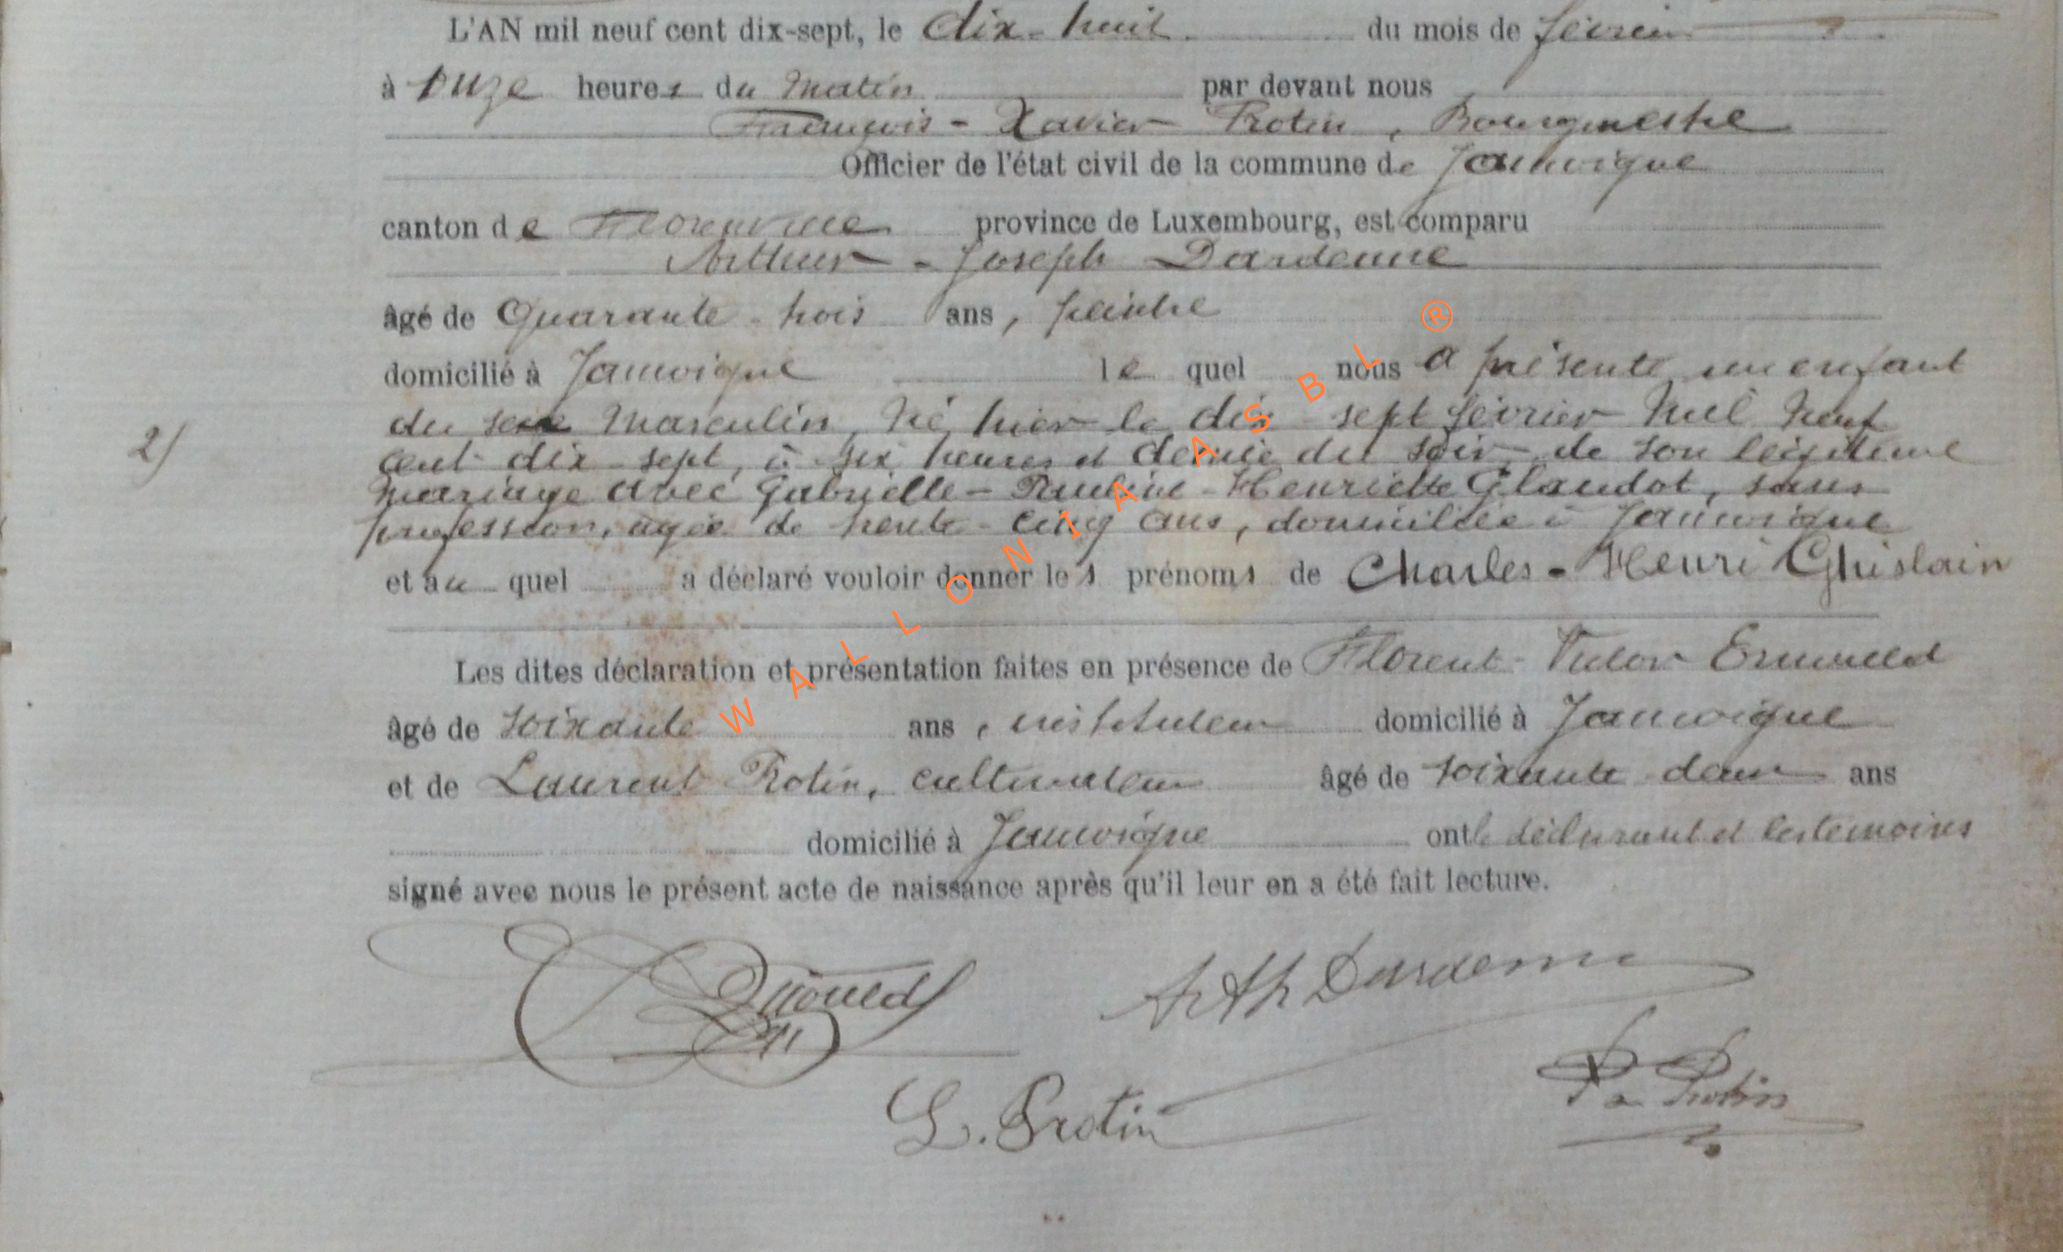 L'AN mil neuf cent dix-sept, le dix-huit du mois de février
à onze heures du matin par devant nous
François-Xavier Protin, Bourgmestre
Officier de l'état civil de la commune de Jamoigne
canton de Florenville province de Luxembourg, est comparu
Arthur-Joseph Dardenne
âgé de Quarante trois ans, peintre
domicilié à Jamoigne lequel nous a présenté un enfant
du sexe masculin, né hier le dix-sept février mil neuf
2) cent dix-sept, à six heures et demie du soir, de son légitime
mariage avec Gabrielle-Pauline-Henriette Glaudot, sans
profession, agée de trente-cinq ans, domiciliée à Jamoigne
et au quel a déclaré vouloir donner les prénoms de Charles-Henri Ghislain
Les dites déclaration et présentation faites en présence de Florent-Victor
âgé de soixante ans, instituteur domicilié à Jamoigne
et de Laurent Protin, cultivateur âgé de soixante deux ans
domicilié à Jamoigne ont le déclarant et les témoins
signé avec nous le présent acte de naissance après qu'il leur en a été fait lecture.
Arth Dardenne
L. Protin
Protin
WALLONIA ASBL ®